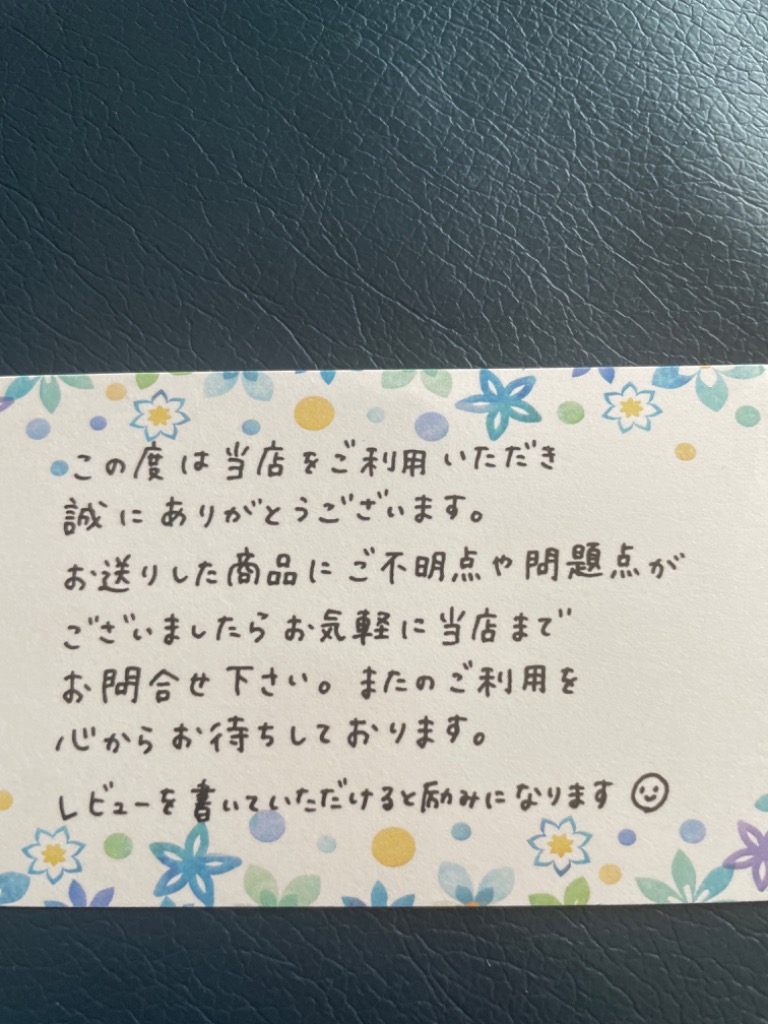 この度は当店をご利用いただき
誠にありがとうございます。
お送りした商品にご不明点や問題点が
ございましたらお気軽に当店まで
お問合せ下さい。またのご利用を
心からお待ちしております。
レビューを書いていただけると励みになります